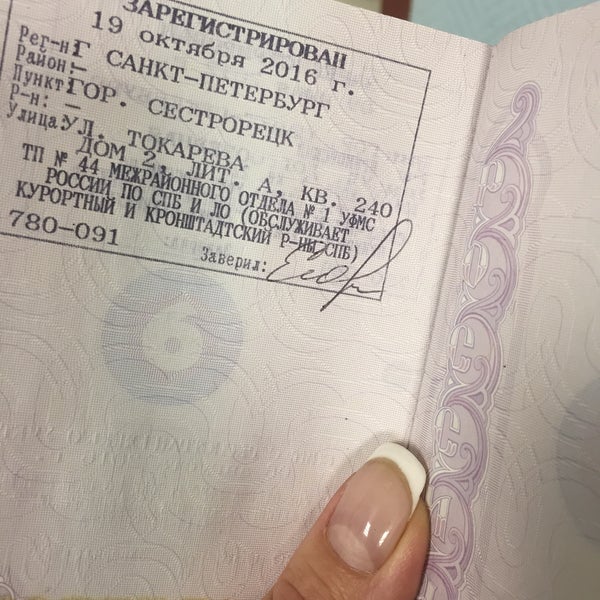 ЗАРЕГИСТРИРОВАН
19 октября 2016 г.
Рег-н: Г САНКТ-ПЕТЕРБУРГ
Район: —
Пункт: ГОР. СЕСТРОРЕЦК
Р-н: —
Улица: УЛ. ТОКАРЕВА
ДОМ 2, ЛИТ. А, КВ. 240
ТП № 44 МЕЖРАЙОННОГО ОТДЕЛА № 1 УФМС
РОССИИ ПО СПБ И ЛО (ОБСЛУЖИВАЕТ
КУРОРТНЫЙ И КРОНШТАДТСКИЙ Р-НЫ СПБ)
780-091
Заверил: